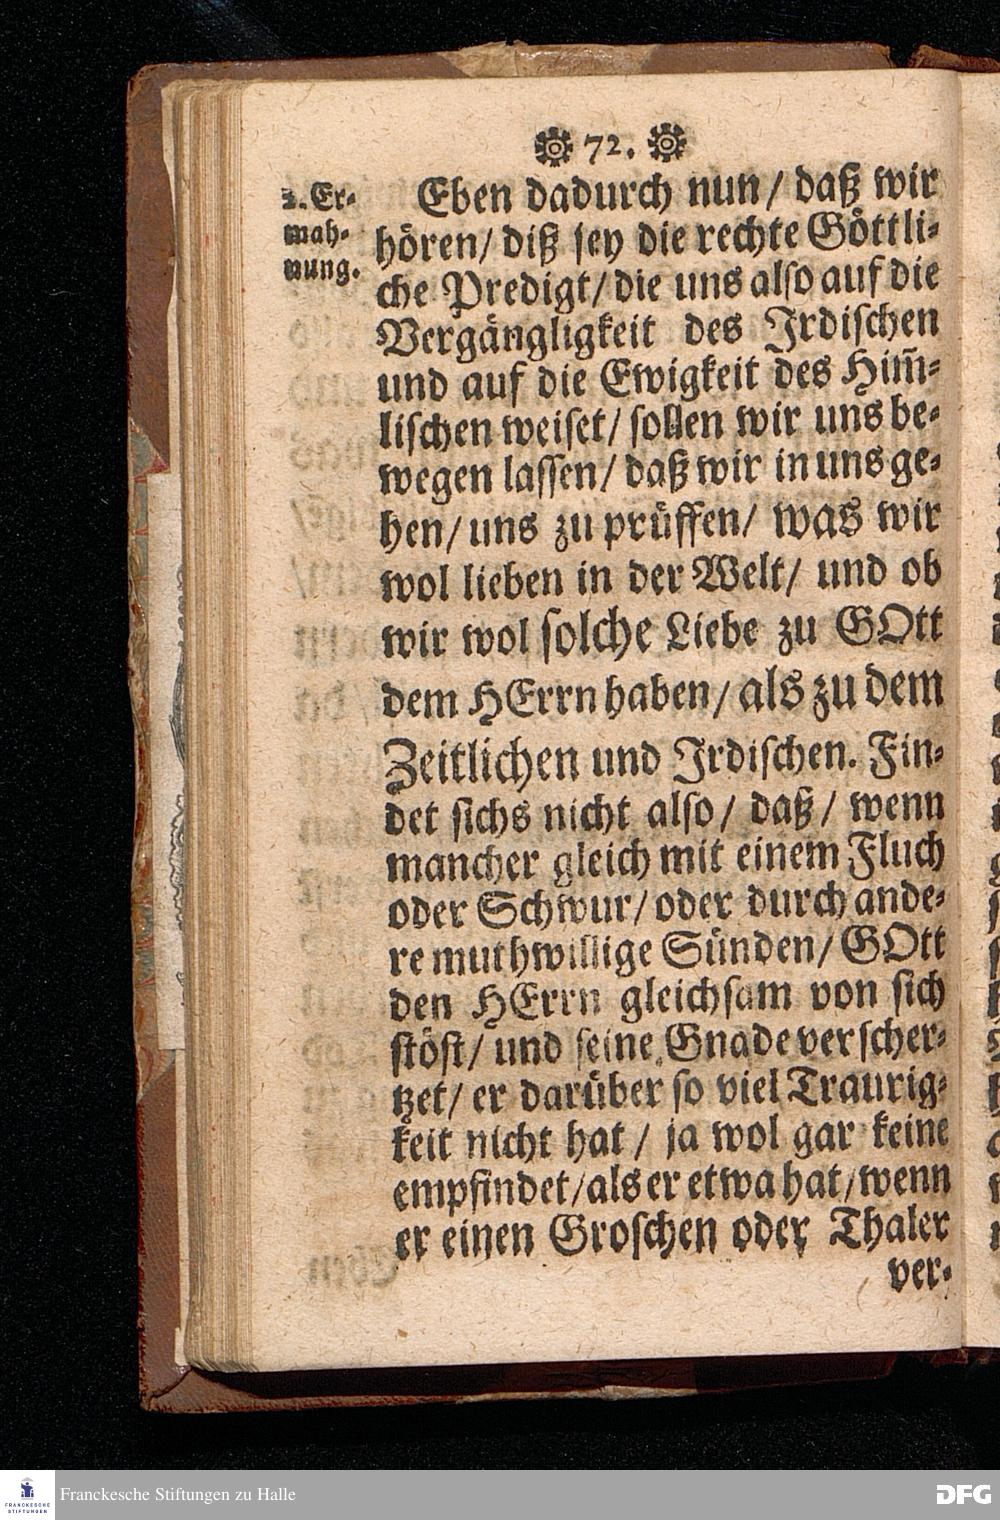 72.
2. Er-
mah-
nung.
Eben dadurch nun / daß wir
hören / diß sey die rechte Göttli-
che Predigt / die uns also auf die
Vergängligkeit des Irdischen
und auf die Ewigkeit des Him̃-
lischen weiset / sollen wir uns be-
wegen lassen / daß wir in uns ge-
hen / uns zu prüffen / was wir
wol lieben in der Welt / und ob
wir wol solche Liebe zu GOtt
dem HErrn haben / als zu dem
Zeitlichen und Irdischen. Fin-
det sichs nicht also / daß / wenn
mancher gleich mit einem Fluch
oder Schwur / oder durch ande-
re muthwillige Sünden / GOtt
den HErrn gleichsam von sich
stöst / und seine Gnade verscher-
tzet / er darüber so viel Traurig-
keit nicht hat / ja wol gar keine
empfindet / als er etwa hat / wenn
er einen Groschen oder Thaler
ver-
FRANCKESCHE
STIFTUNGEN
Franckesche Stiftungen zu Halle
DFG